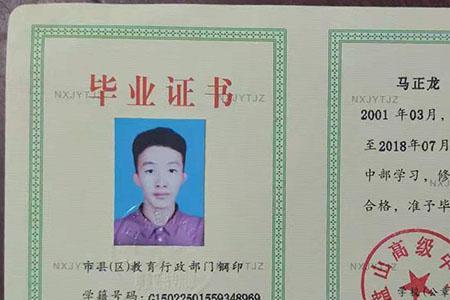 毕业证书
市县(区)教育行政部门钢印
学籍号码:G15022501559348969
马正龙
2001 年03月,
至2018年07月
中部学习，修
合格，准予毕
山高级中
学校(公章
NXJYTJZ
NXJYTJZ
NXJYTJZ
NXJYTJZ